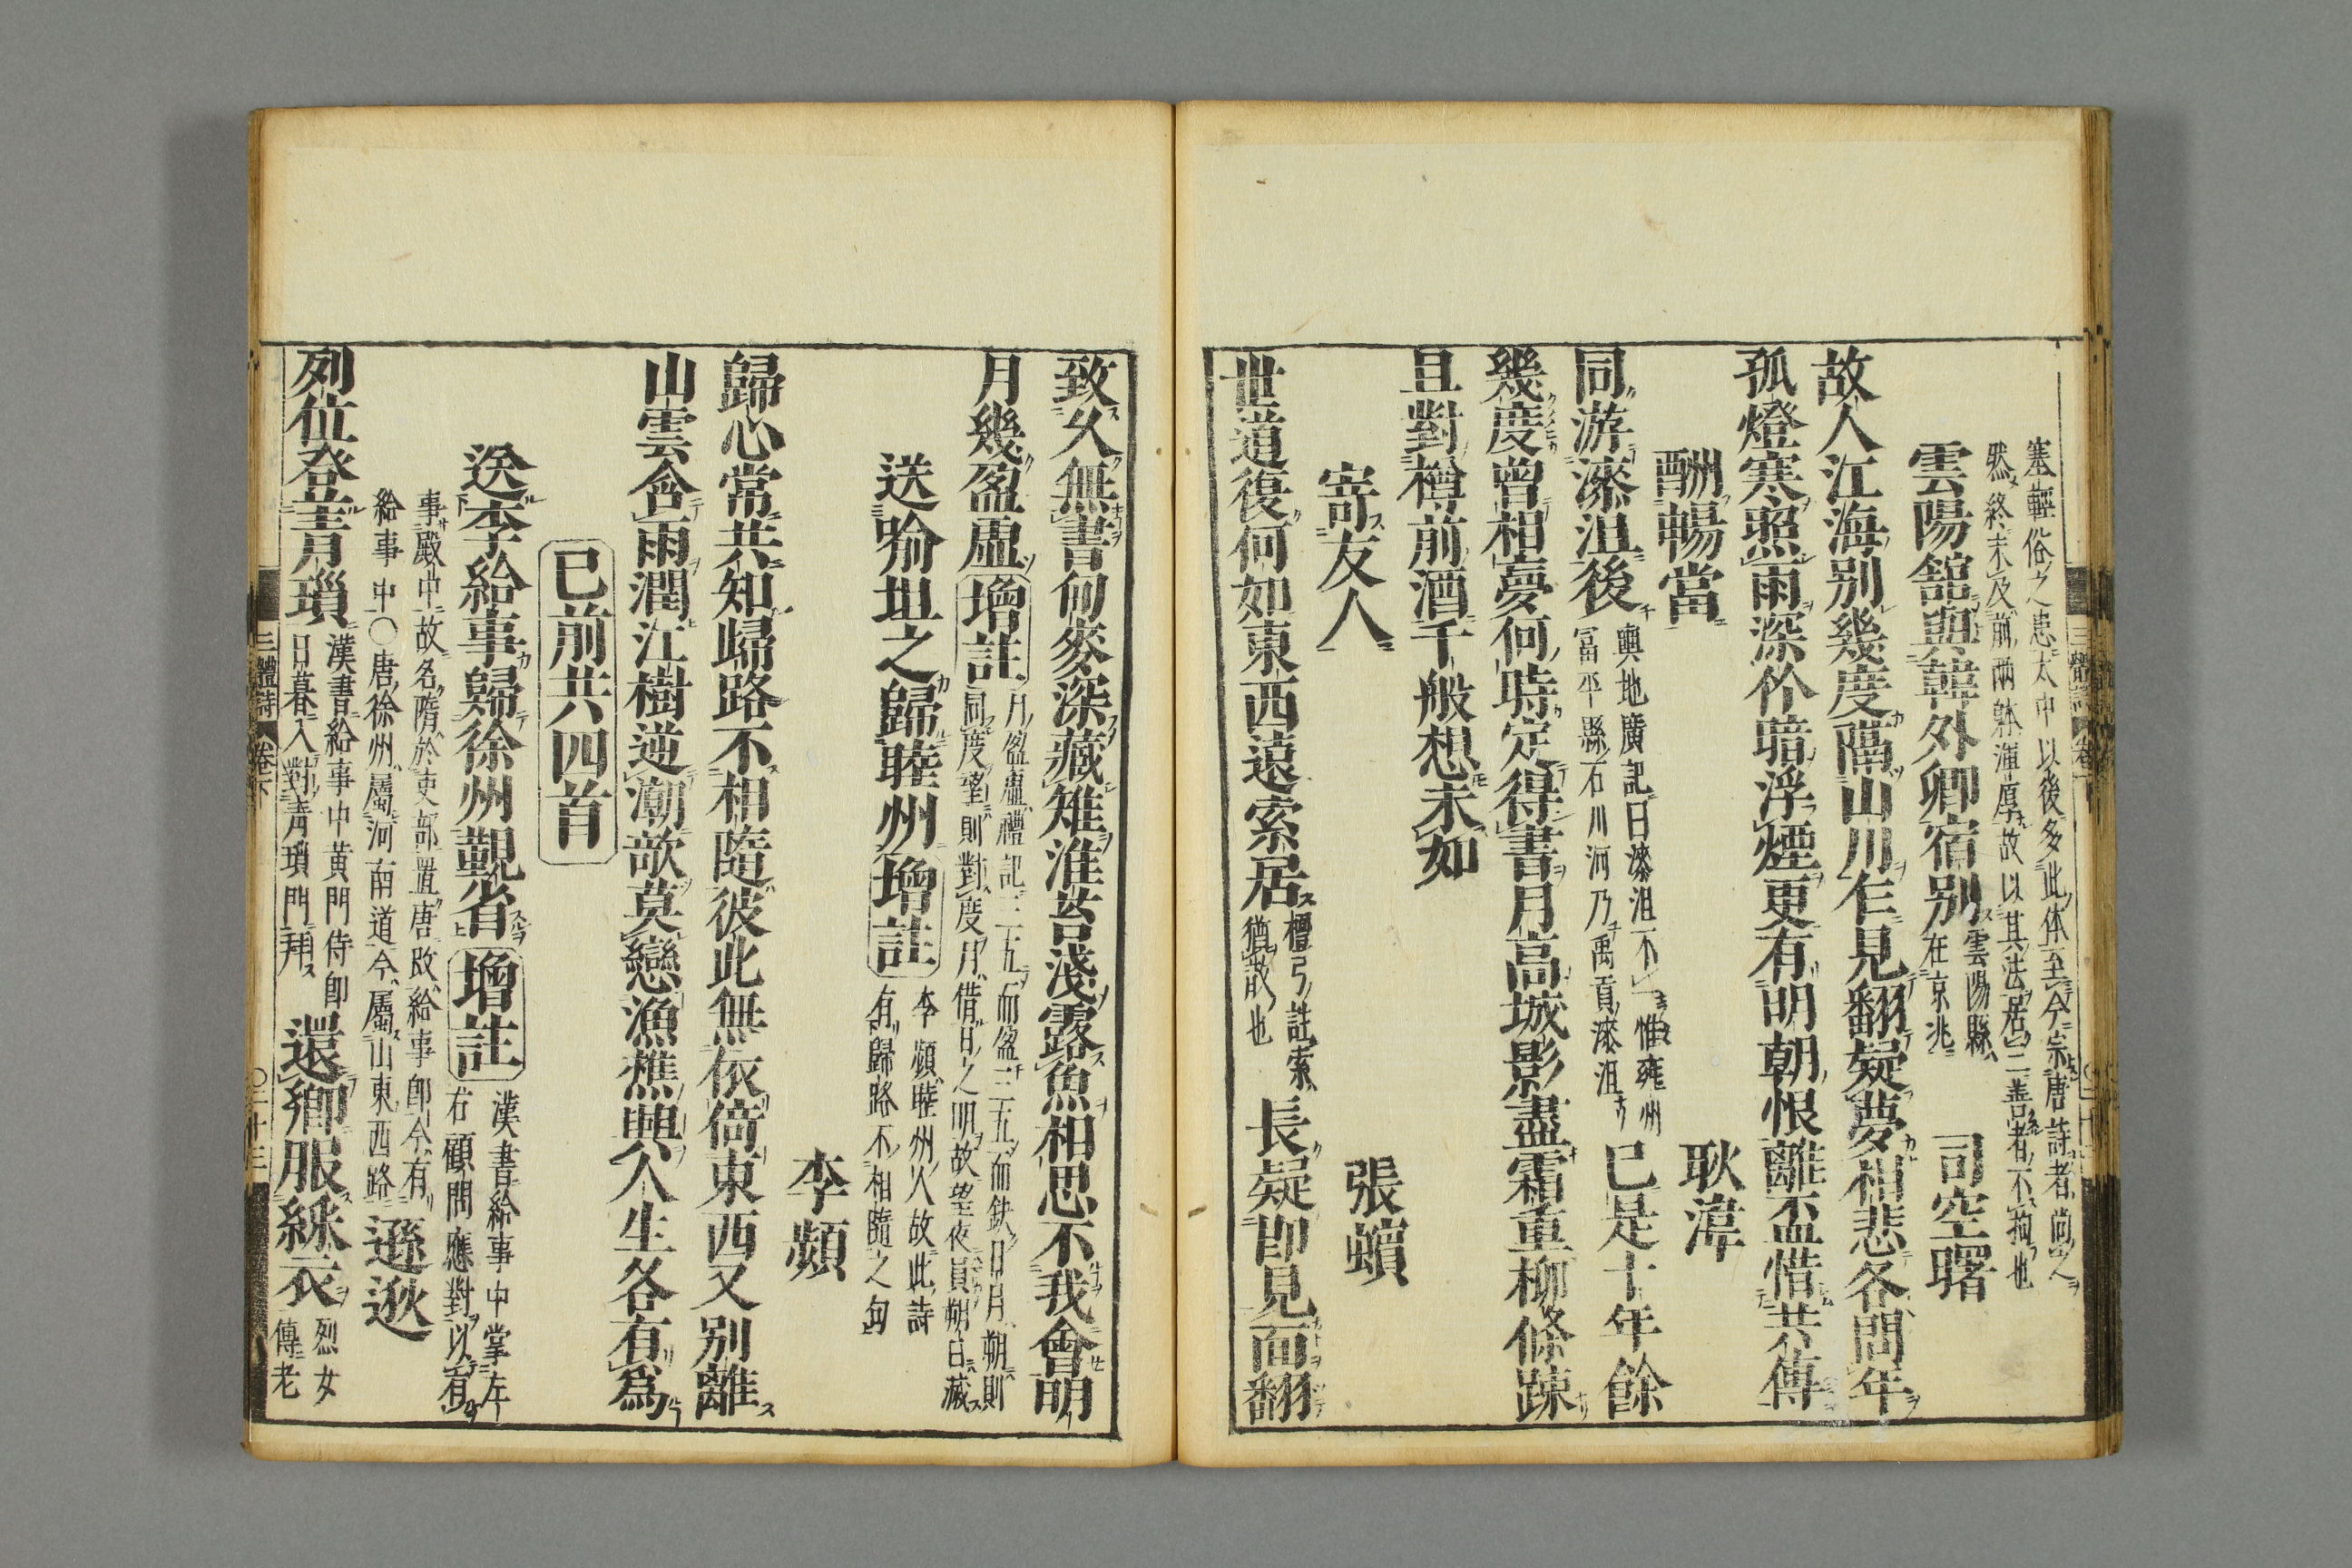 塞輕俗之患太中以後多此体至今宗唐詩者尚之
然終未及前兩体渾厚故以其法居三善者不拘也
雲陽館與韓外卿宿別
雲陽縣
在京兆
司空曙
故人江海別幾度隔山川乍見翻疑夢相悲各問年
孤燈寒照雨深竹暗浮煙更有明朝恨離盃惜共傳
酬暢當
耿湋
同游漆沮後
輿地廣記曰漆沮不一惟雍州
富平縣石川河乃禹貢漆沮
已是十年餘
幾度曾相夢何時定得書月高城影盡霜重柳條踈
且對樽前酒千般想未如
寄友人
張蠙
世道復何如東西遠索居
檀弓註索
猶散也
長疑即見面翻
致久無書甸麥深藏雉淮苔淺露魚相思不我會明
月幾盈虛
增註
月盈虛禮記三五而盈三五而缺日月朔則
同度望則對度月借日之明故望夜員朔日藏
送喻坦之歸睦州
增註
李頻睦州人故此詩
有歸路不相隨之句
李頻
歸心常共知歸路不相隨彼此無依倚東西又別離
山雲含雨潤江樹逆潮欹莫戀漁樵興人生各有爲
已前共四首
送李給事歸徐州覲省
增註
漢書給事中掌左
右顧問應對以有
事殿中故名隋於吏部置唐改給事郎今有
給事中○唐徐州屬河南道今屬山東西路
遜逖
列位登青瑣
漢書給事中黃門侍郎
日暮入對青瑣門拜
還鄉服綵衣
烈女
傳老
三體詩 卷下
○二十三